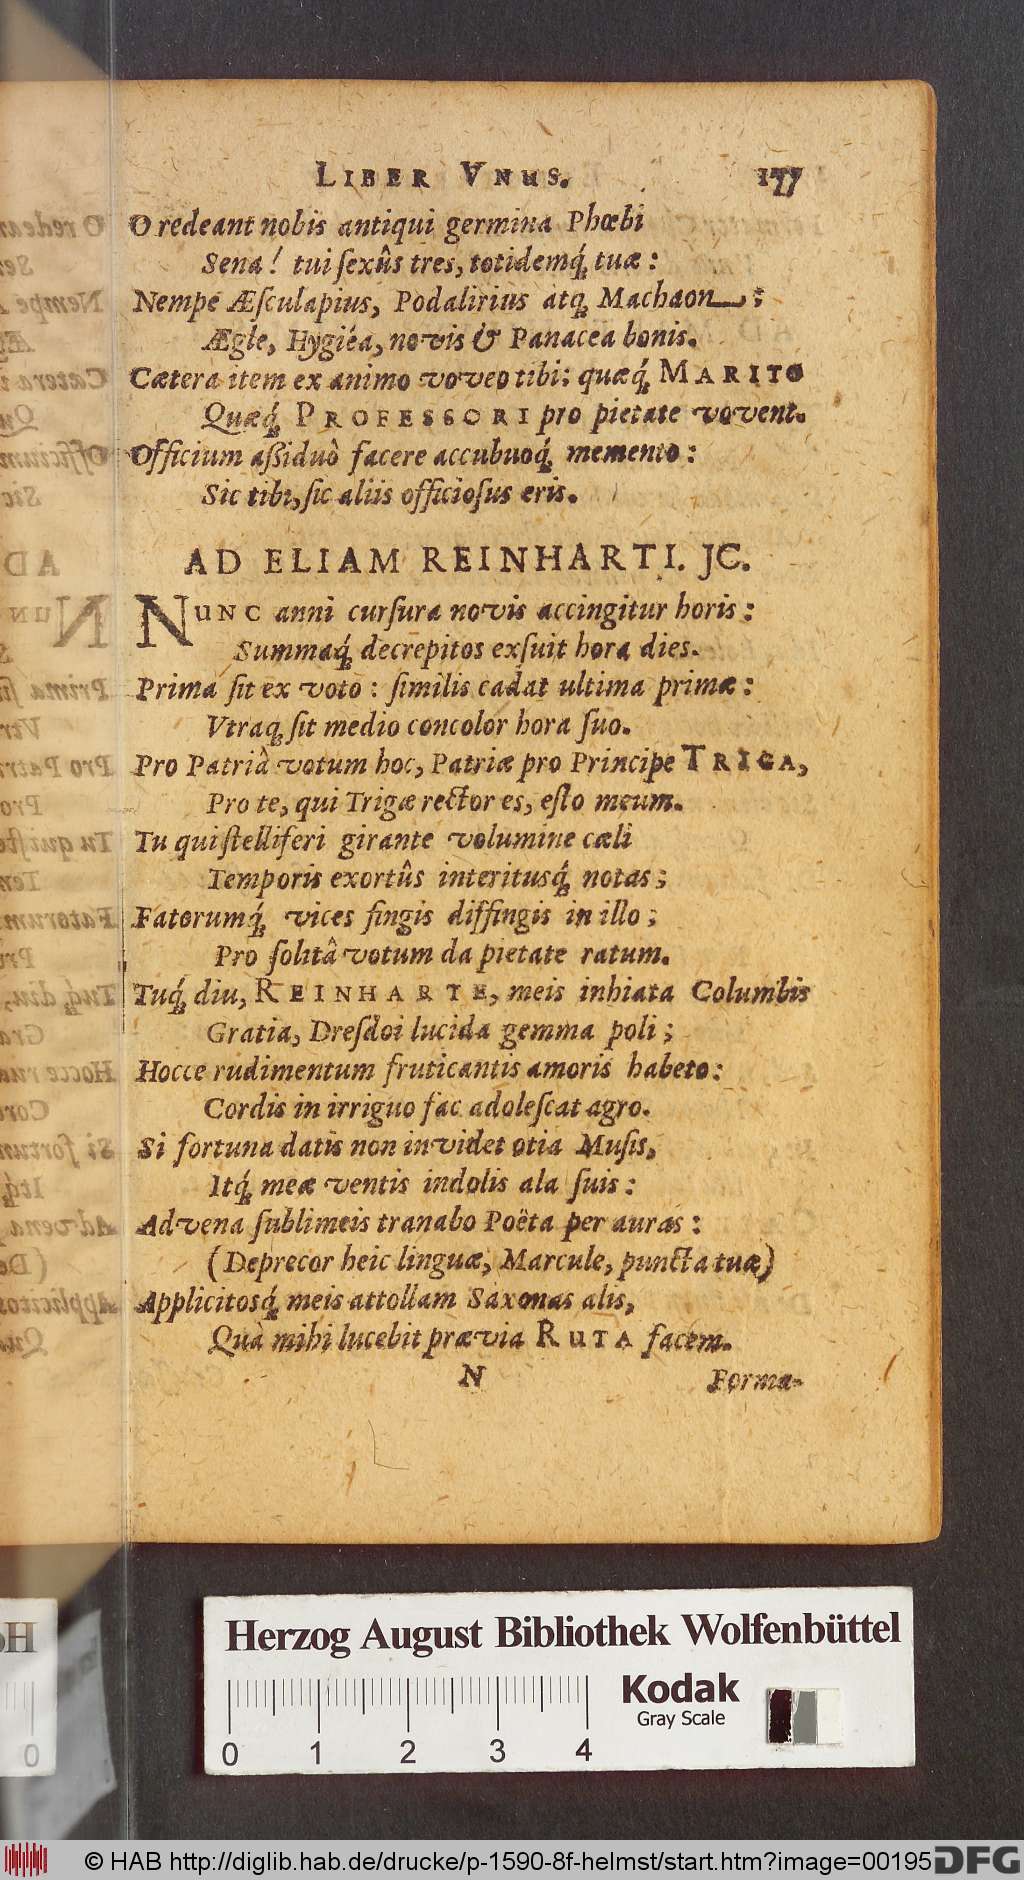 LIBER VNUS. 177
O redeant nobis antiqui germina Phœbi
Sena! tui ſexûs tres, totidemq́; tuæ:
Nempe Æſculapius, Podalirius atq; Machaon;
Ægle, Hygiéa, novis & Panacea bonis.
Cætera item ex animo voveo tibi: quæq́; MARITO
Quæq́; PROFESSORI pro pietate vovent.
Officium aſſiduò facere accubuoq́; memento:
Sic tibi, ſic aliis officioſus eris.
AD ELIAM REINHARTI. JC.
NUNC anni curſura novis accingitur horis:
Summaq́; decrepitos exſuit hora dies.
Prima ſit ex voto: ſimilis cadat ultima primæ:
Vtraq; ſit medio concolor hora ſuo.
Pro Patriâ votum hoc, Patriæ pro Principe TRIGA,
Pro te, qui Trigæ rector es, eſto meum.
Tu qui ſtelliferi girante volumine cæli
Temporis exortûs interitusq́; notas;
Fatorumq́; vices fingis diffingis in illo;
Pro ſolitâ votum da pietate ratum.
Tuq́; diu, REINHARTE, meis inhiata Columbis
Gratia, Dreſdoi lucida gemma poli;
Hocce rudimentum fruticantis amoris habeto:
Cordis in irriguo fac adoleſcat agro.
Si fortuna datis non invidet otia Muſis,
Itq́; meæ ventis indolis ala ſuis:
Advena ſublimeis tranabo Poëta per auras:
(Deprecor heic linguæ, Marcule, puncta tuæ)
Applicitosq́; meis attollam Saxonas alis,
Quà mihi lucebit prævia RUTA facem.
N Forma-
Herzog August Bibliothek Wolfenbüttel
Kodak
Gray Scale
0 1 2 3 4
© HAB http://diglib.hab.de/drucke/p-1590-8f-helmst/start.htm?image=00195
DFG